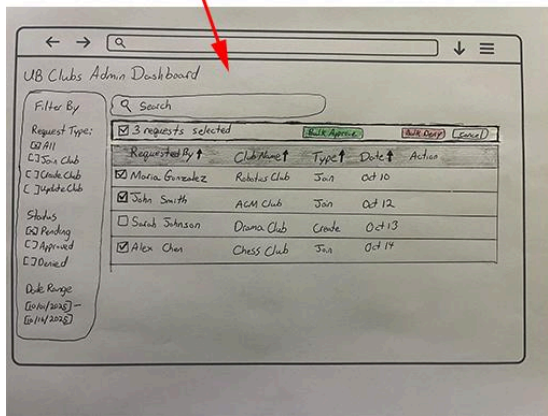 UB Clubs Admin Dashboard
Filter By
Request Type:
[x] All
[ ] Join Club
[ ] Create Club
[ ] Update Club
Status
[x] Pending
[ ] Approved
[ ] Denied
Date Range
[10/01/2025] –
Search
3 requests selected
Bulk Approve
Bulk Deny
Cancel
Requested By ↑ Club Name ↑ Type ↑ Date ↑ Action
Maria Gonzalez Robotics Club Join Oct 10
John Smith ACM Club Join Oct 12
Sarah Johnson Drama Club Create Oct 13
Alex Chen Chess Club Join Oct 14